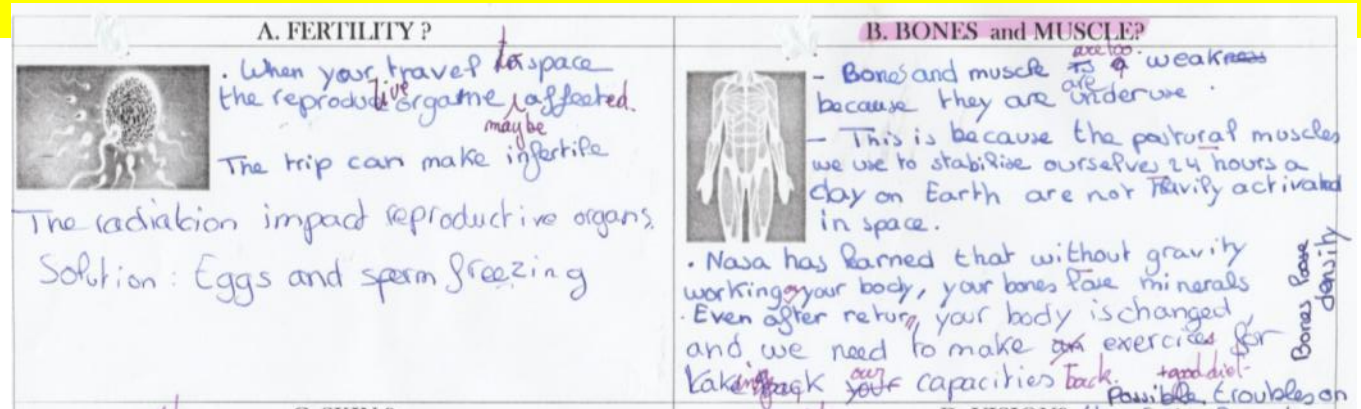 A. FERTILITY ?
. When your travel to space
the reproductive orgame affected.
maybe
The trip can make infertile
The radiation impact reproductive organs.
Solution : Eggs and sperm freezing
B. BONES and MUSCLE?
are too
- Bones and muscle is a weakness
because they are underuse.
- This is because the postural muscles
we use to stabilise ourselves 24 hours a
day on Earth are not heavily activated
in space.
. Nasa has learned that without gravity
working on your body, your bones lose minerals
. Even after return, your body is changed
and we need to make an exercices for
taking back your capacities back.
our
+ good diet.
Bones loose
density
Possible troubles on